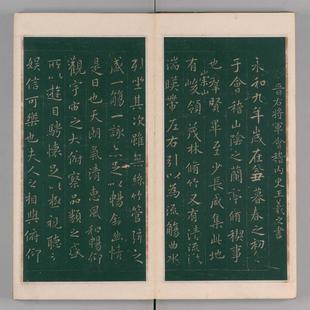 晉右將軍會稽內史王羲之書
永和九年歲在癸丑暮春之初會
于會稽山陰之蘭亭脩稧事
也羣賢畢至少長咸集此地
有崇山峻領茂林脩竹又有清流激
湍暎帶左右引以為流觴曲水
列坐其次雖無絲竹管弦之
盛一觴一詠亦足以暢敘幽情
是日也天朗氣清惠風和暢仰
觀宇宙之大俯察品類之盛
所以遊目騁懷足以極視聽之
娛信可樂也夫人之相與俯仰